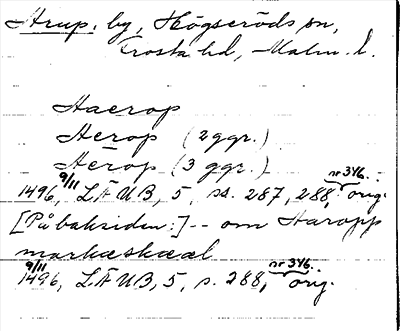 Harup, by, Högseröds sn,
Frosta hd, Malm. l.
Haerop
Herop (2 ggr.)
Herop (3 ggr.)
9/11 1496, LÄUB, 5, ss. 287, 288, nr 346. orig.
[På baksiden:] -- om Haropp
markæskæal
9/11 1496, LÄUB, 5, s. 288, nr 346. orig.